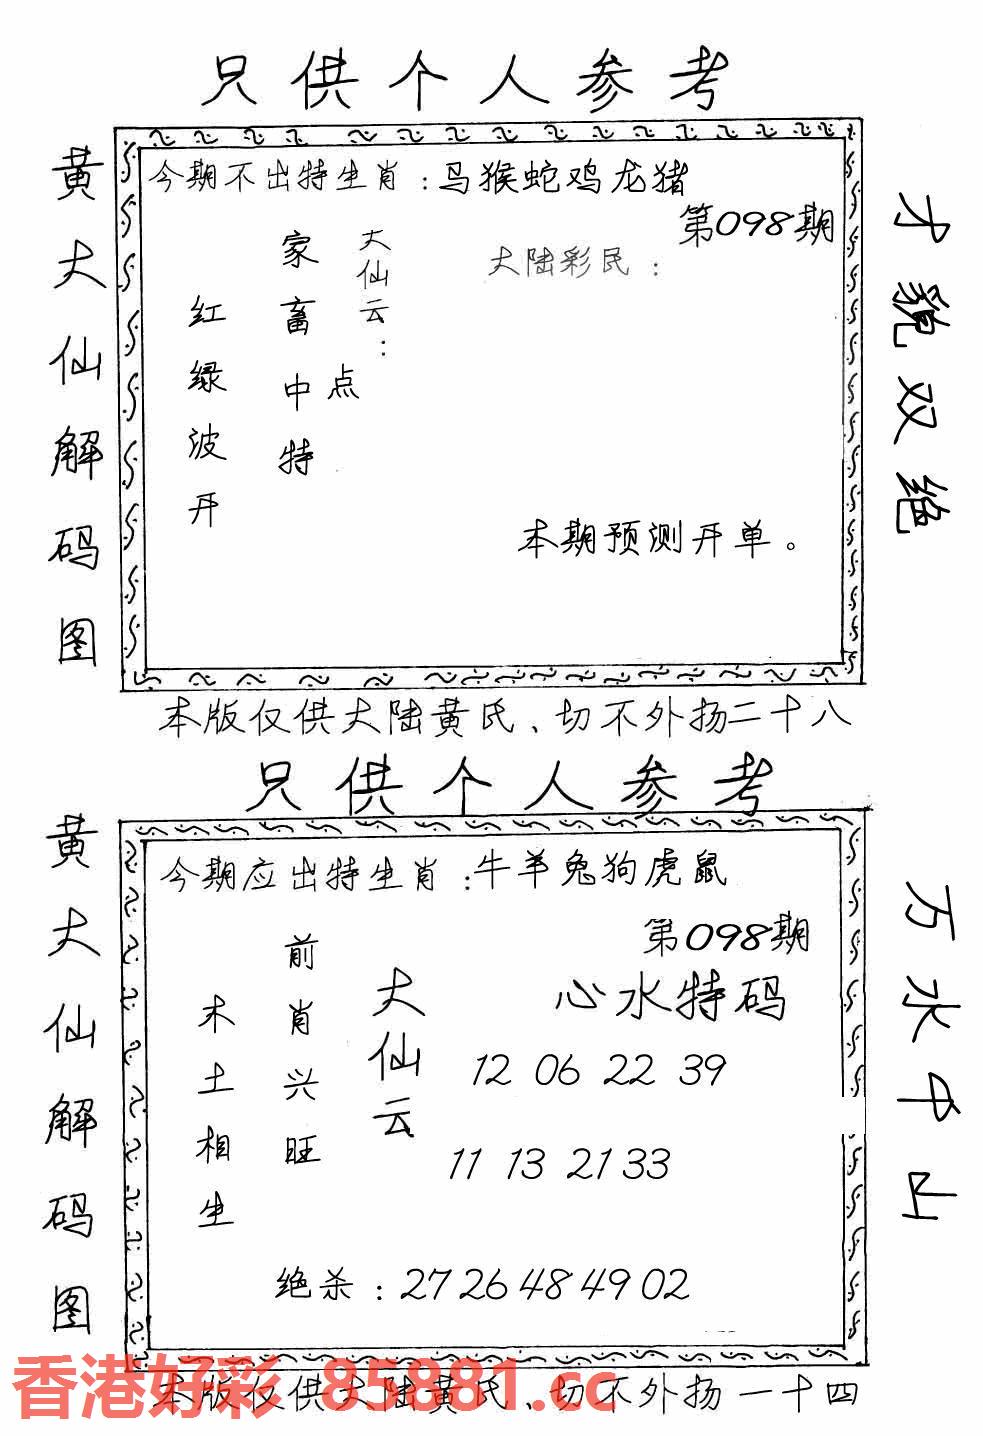 只供个人参考
黄大仙解码图
今期不出特生肖：马猴蛇鸡龙猪
第098期
大陆彩民：
大仙云：
点
家畜中特
红绿波开
本期预测开单。
才貌双绝
本版仅供大陆黄氏、切不外扬二十八
只供个人参考
黄大仙解码图
今期应出特生肖：牛羊兔狗虎鼠
第098期
心水特码
大仙云
前肖兴旺
木土相生
12 06 22 39
11 13 21 33
绝杀：27 26 48 49 02
万水千山
香港好彩 85881.cc
本版仅供大陆黄氏、切不外扬一十四